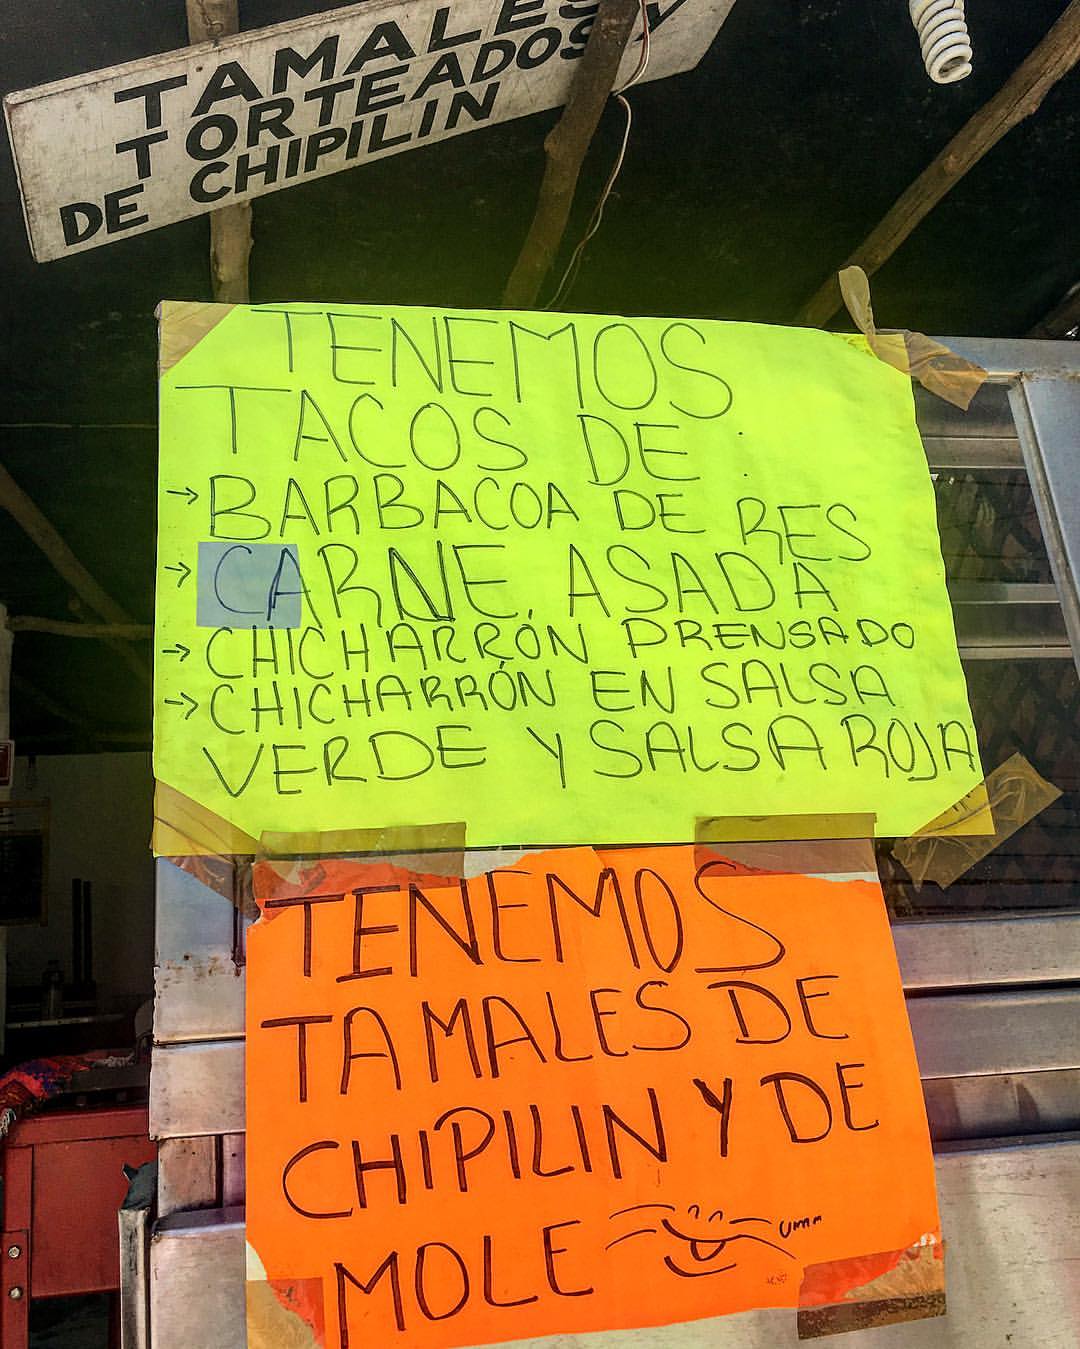 TAMALES
TORTEADOS Y
DE CHIPILIN
TENEMOS
TACOS DE:
→ BARBACOA DE RES
→ CARNE ASADA
→ CHICHARRÓN PRENSADO
→ CHICHARRÓN EN SALSA
VERDE Y SALSA ROJA
TENEMOS
TAMALES DE
CHIPILIN Y DE
MOLE
umm